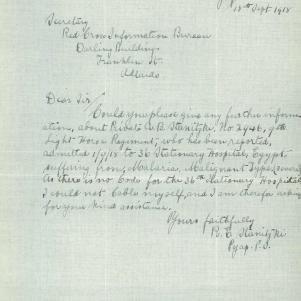 18th Sept 1918
Secretary
Red Cross Information Bureau
Darling Buildings
Franklin St.
Adelaide
Dear Sir
Could you please give any further inform-
ation, about Private A.B. No 2946, 9th
Light Horse Regiment, who has been reported,
admitted 1/9/18 to 36 Stationary Hospital, Egypt
suffering from, Malaria, Malignant Type,
As there is no Code for the 36th Stationary Hospital
I could not Cable myself, and I am asking
for your kind assistance.
Yours faithfully
B.
Pyap.